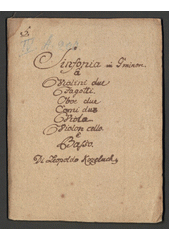 Sinfonia in G minor.
à
Violini due
Fagotti.
Oboe due
Corni due
Viola
Violon cello.
è
Basso.
Di Leopoldo Kozeluch